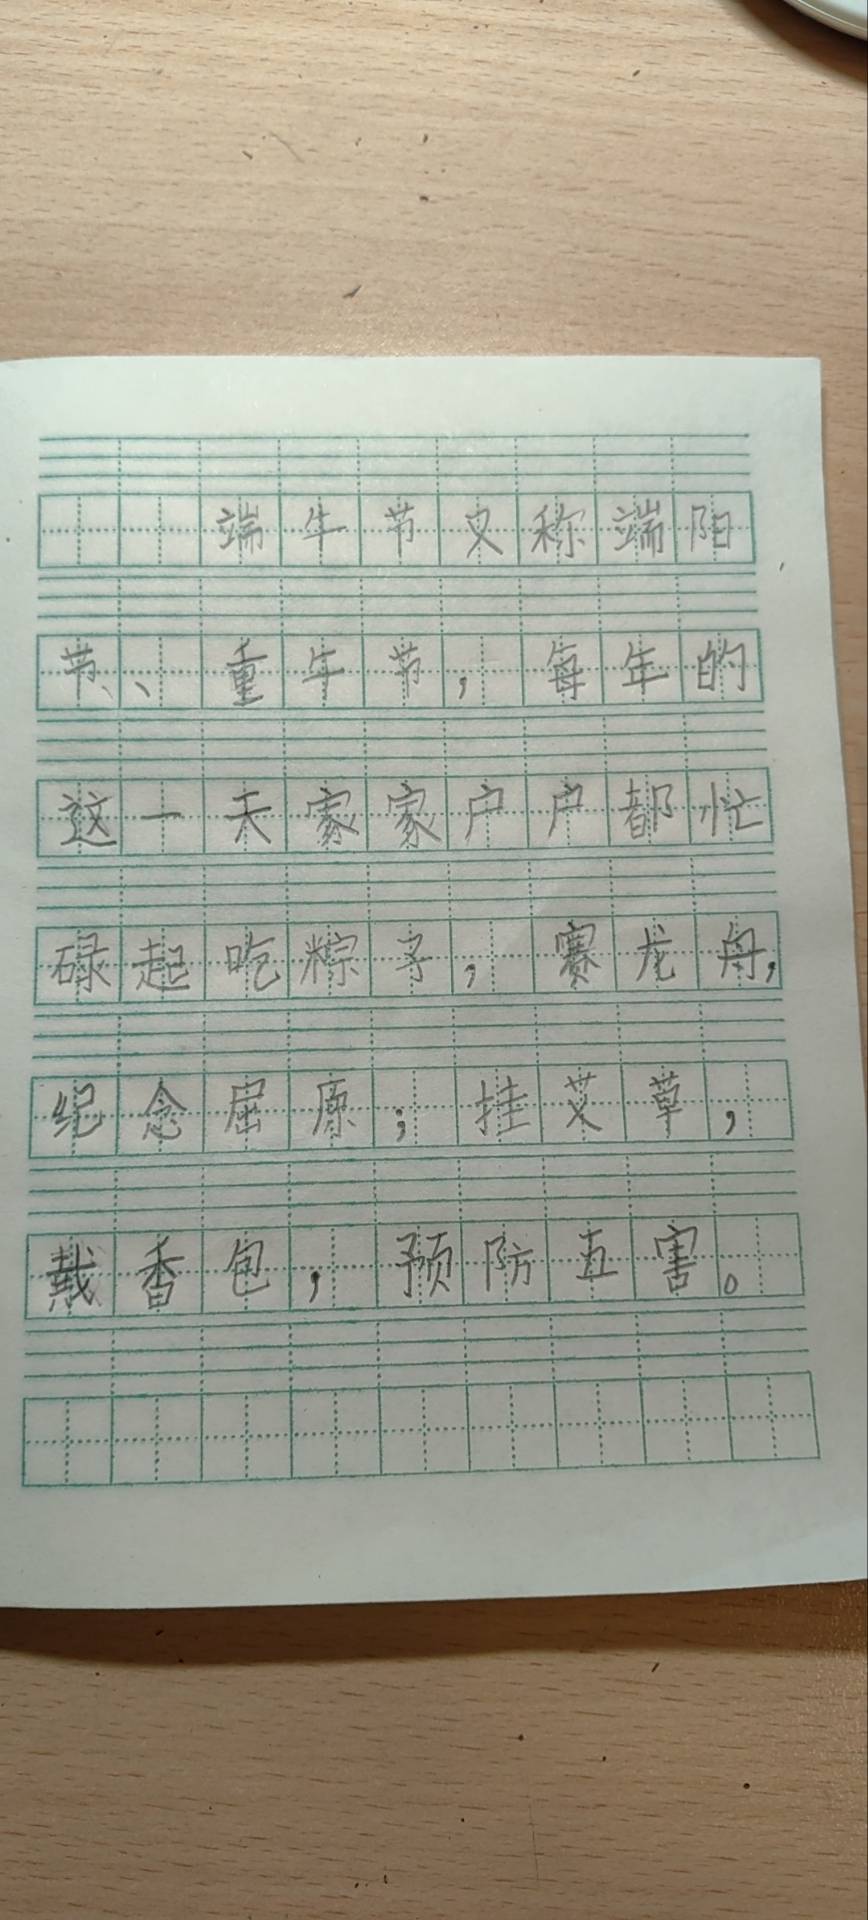 端午节又称端阳
节、重午节，每年的
这一天家家户户都忙
碌起吃粽子，赛龙舟，
纪念屈原；挂艾草，
戴香包，预防五害。